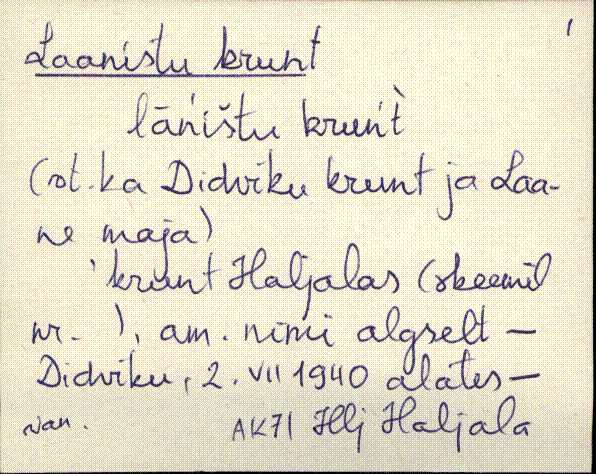 1
Laanistu krunt
lāńištu kruńt̀
(vt. ka Didviku krunt ja Laa-
ne maja)
'krunt Haljalas (skeemil
nr. ), am. nimi algselt –
Didviku, 2. VII 1940 alates –
van. AK71 Hlj Haljala